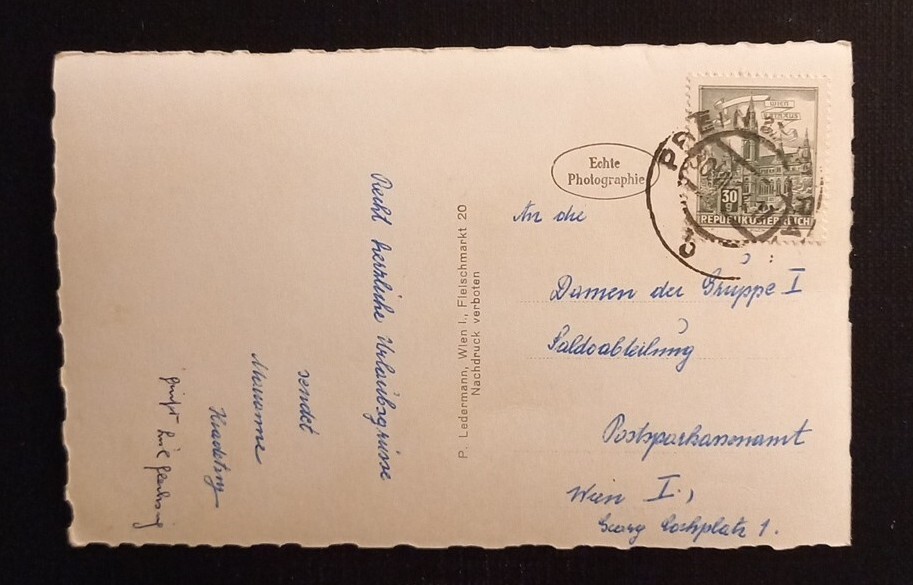 Recht herzliche Urlaubsgrüsse
sendet
Marianne
P. Ledermann, Wien I., Fleischmarkt 20
Nachdruck verboten
Echte
Photographie
WIEN
RATHAUS
30
g
REPUBLIK ÖSTERREICH
PREIN
An die
Damen der Gruppe I
Saldoabteilung
Postsparkassenamt
Wien I.,
Georg Cochplatz 1.